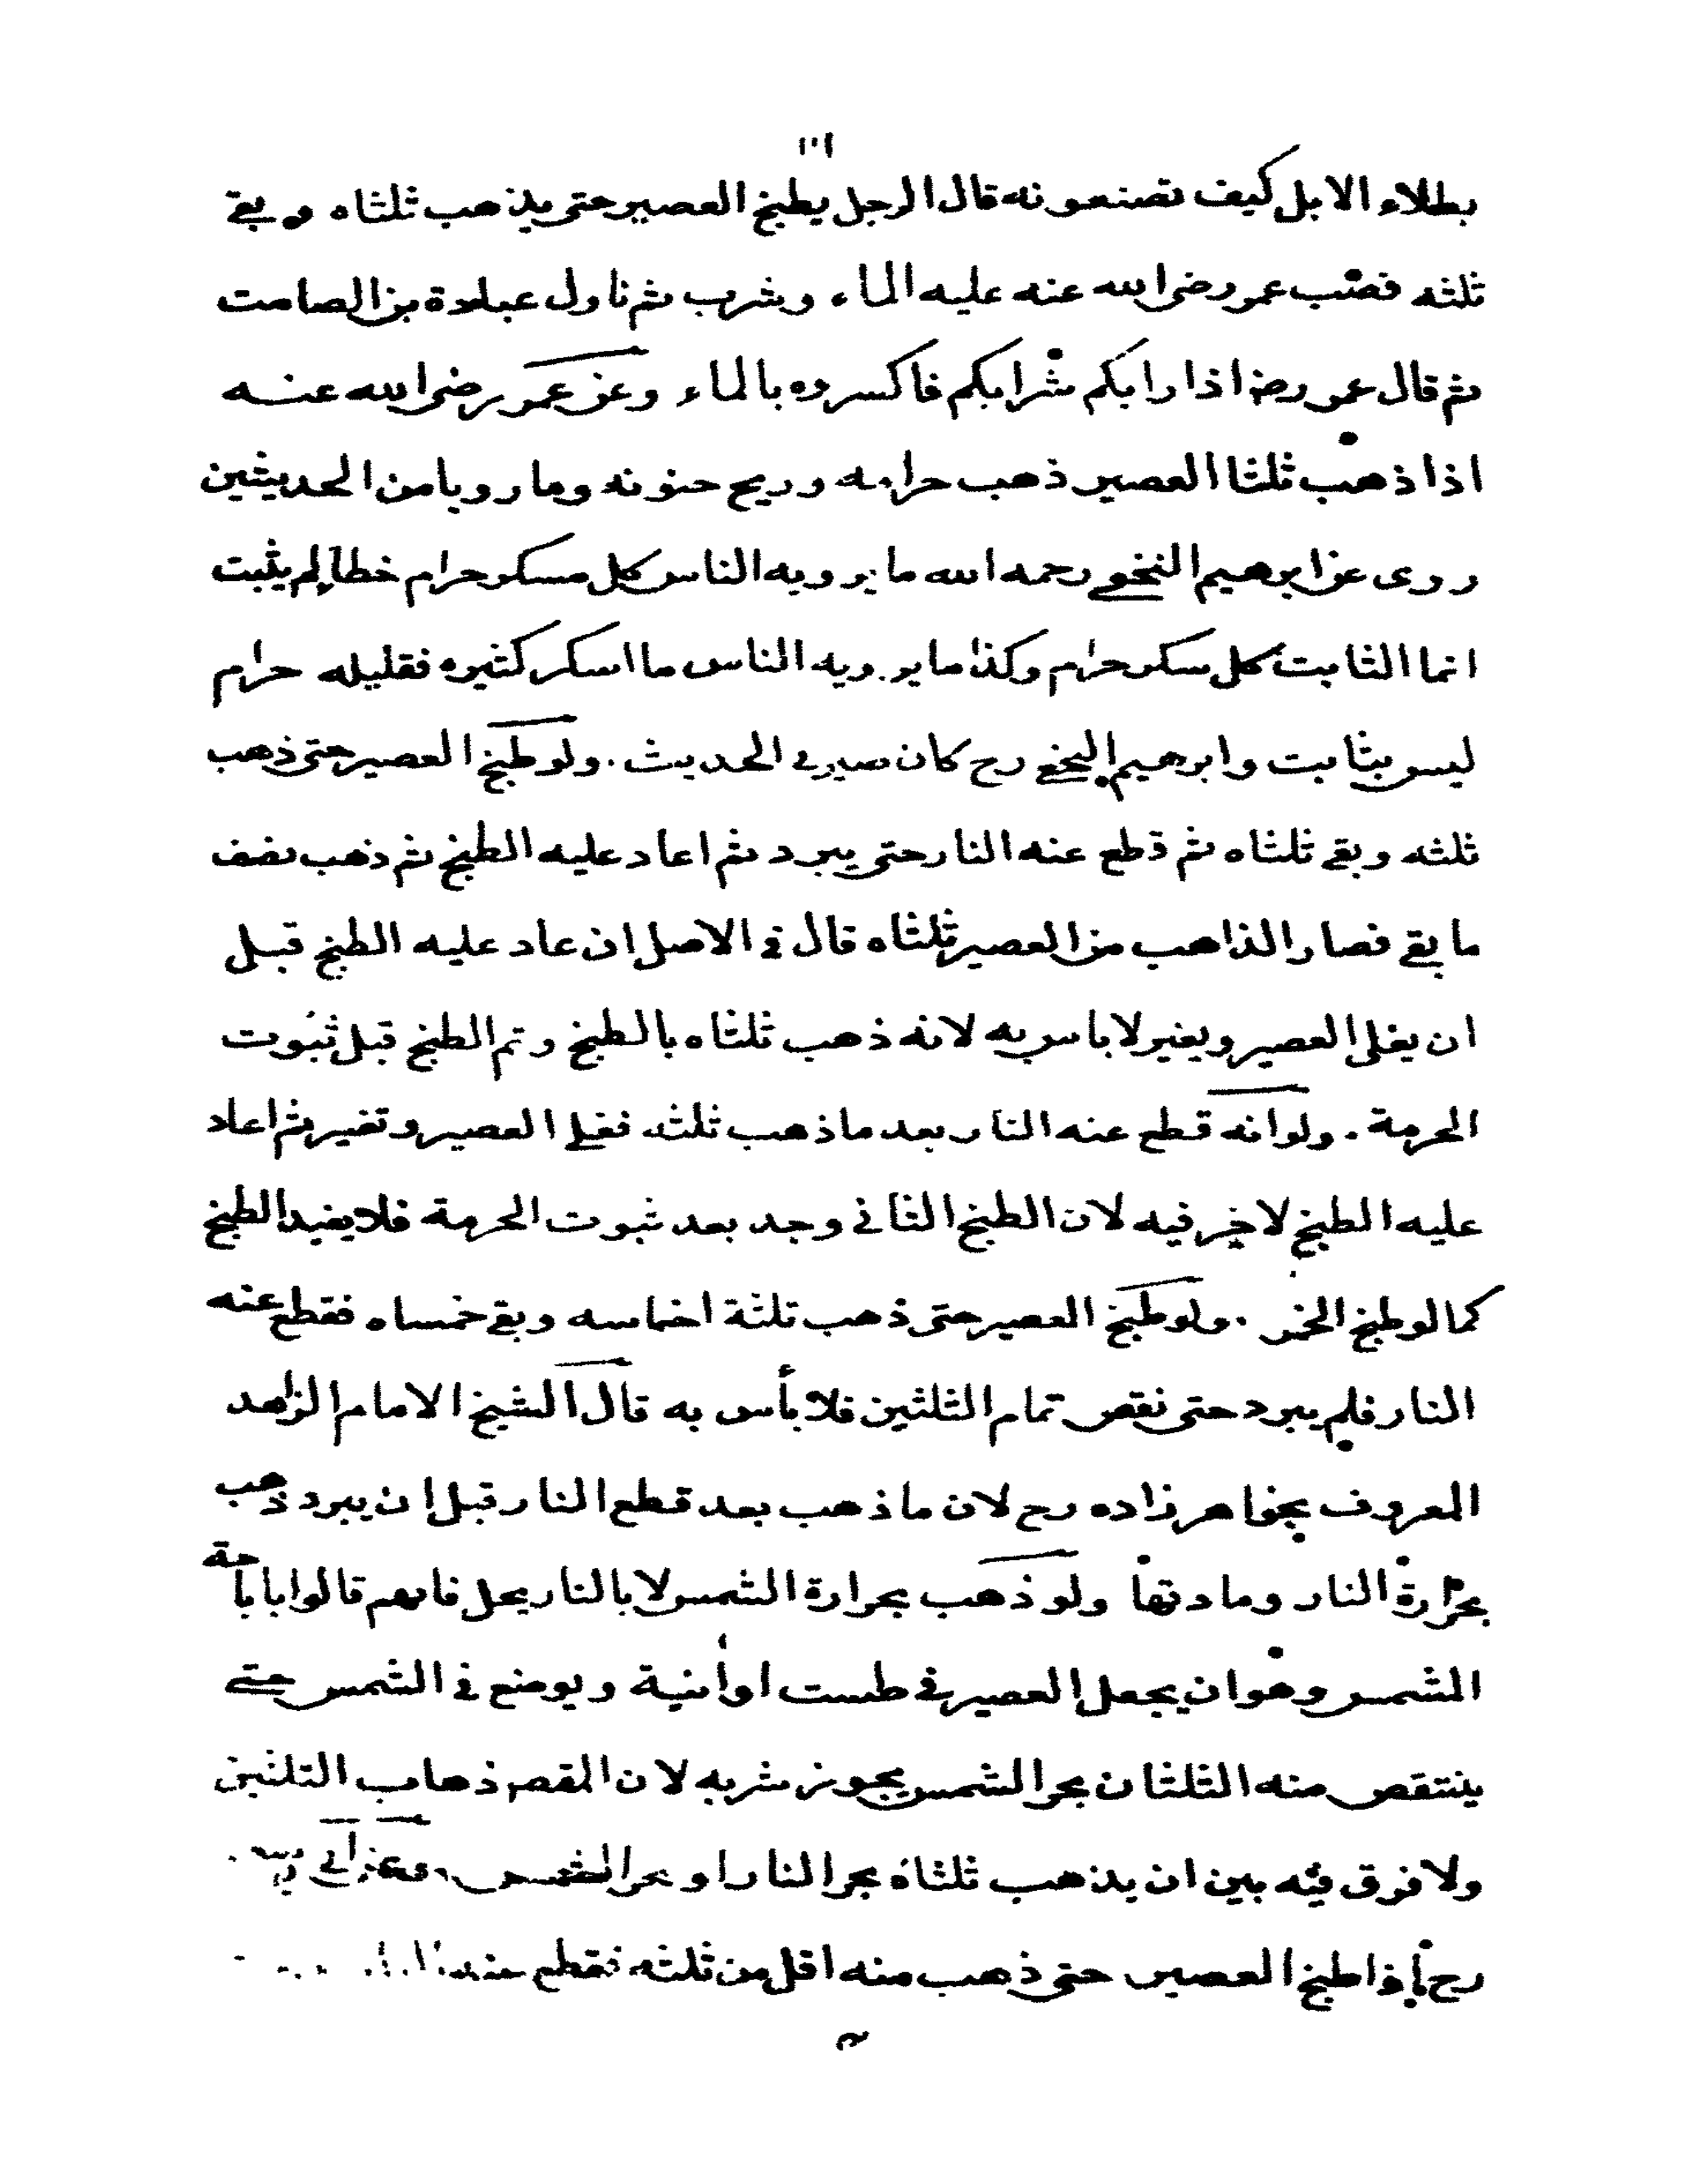 بطلاء الابل كيف تصنعونه قال الرجل يطبخ العصير حتى يذهب ثلثاه وبقى
ثلثه فصب عمر رضى الله عنه عليه الماء وشرب ثم ناول عبادة بن الصامت
ثم قال عمر رضه اذا رابكم شرابكم فاكسروه بالماء وعن عمر رضى الله عنه
اذا ذهب ثلثا العصير ذهب حرامه وريح جنونه وما رويا من الحديثين
روى عن ابرهيم النخعى رحمه الله ما يرويه الناس كل مسكر حرام خطا لم يثبت
انما الثابت كل سكر حرام وكذا ما يرويه الناس ما اسكر كثيره فقليله حرام
ليس بثابت وابرهيم النخعى رح كان صيرفى الحديث . ولو طبخ العصير حتى ذهب
ثلثه وبقى ثلثاه ثم قطع عنه النار حتى يبرد ثم اعاد عليه الطبخ ثم ذهب نصف
ما بقى فصار الذاهب من العصير ثلثاه قال فى الاصل ان عاد عليه الطبخ قبل
ان يغلى العصير ويغير لا باس به لانه ذهب ثلثاه بالطبخ وتم الطبخ قبل ثبوت
الحرمة . ولو انه قطع عنه النار بعد ما ذهب ثلثه فغلى العصير وتغير ثم اعاد
عليه الطبخ لا خير فيه لان الطبخ الثانى وجد بعد ثبوت الحرمة فلا يفيد الطبخ
كما لو طبخ الخمر . ولو طبخ العصير حتى ذهب ثلثة اخماسه وبقى خمساه فقطع عنه
النار فلم يبرد حتى نقص تمام الثلثين فلا بأس به قال الشيخ الامام الزاهد
المعروف بخواهر زاده رح لان ما ذهب بعد قطع النار قبل ان يبرد ذهب
بحرارة النار ومادتها ولو ذهب بحرارة الشمس لا بالنار يحل فانهم قالوا باباحة
المشمس وهو ان يجعل العصير فى طست او انية ويوضع فى الشمس حتى
ينتقص منه الثلثان بحر الشمس يجوز شربه لان المقص ذهاب الثلثين
ولا فرق فيه بين ان يذهب ثلثاه بحر النار او بحر الشمس وعن ابى
رح اذا طبخ العصير حتى ذهب منه اقل من ثلثه فقطع عنه